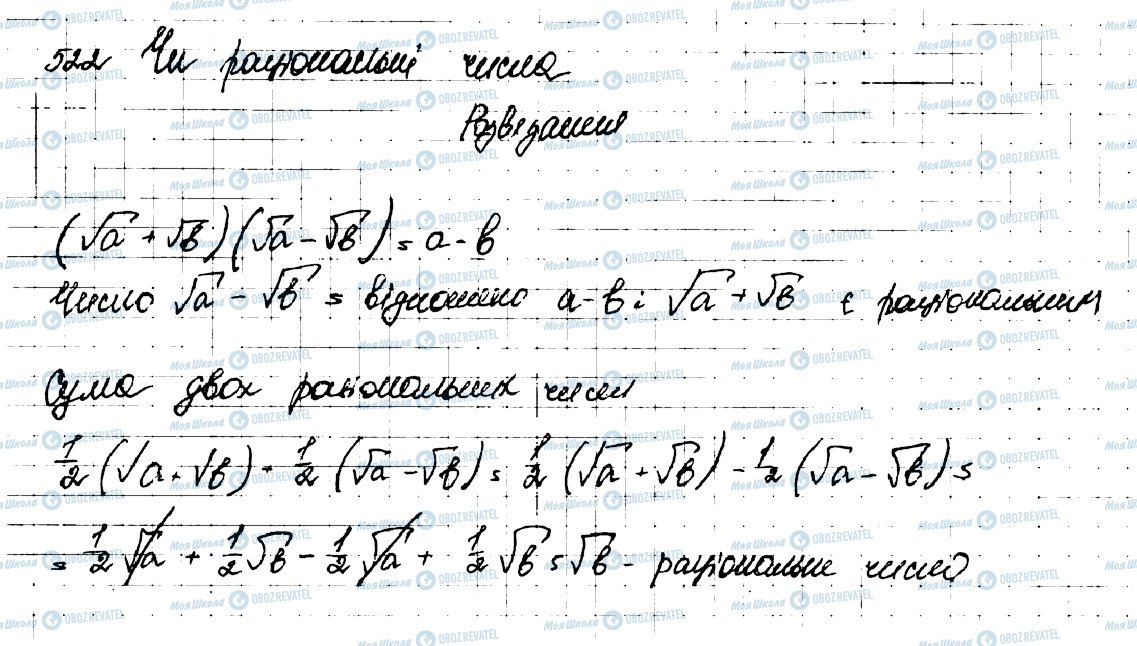 522 Чи раціональні числа
Розв'язання
(√a + √b)(√a - √b) = a - b
Число √a - √b = відношенню a - b і √a + √b є раціональним
Сума двох раціональних чисел
1/2 (√a + √b) - 1/2 (√a - √b) = 1/2 (√a + √b) - 1/2 (√a - √b) =
= 1/2 √a + 1/2 √b - 1/2 √a + 1/2 √b = √b - раціональне число
Моя Школа OBOZREVATEL